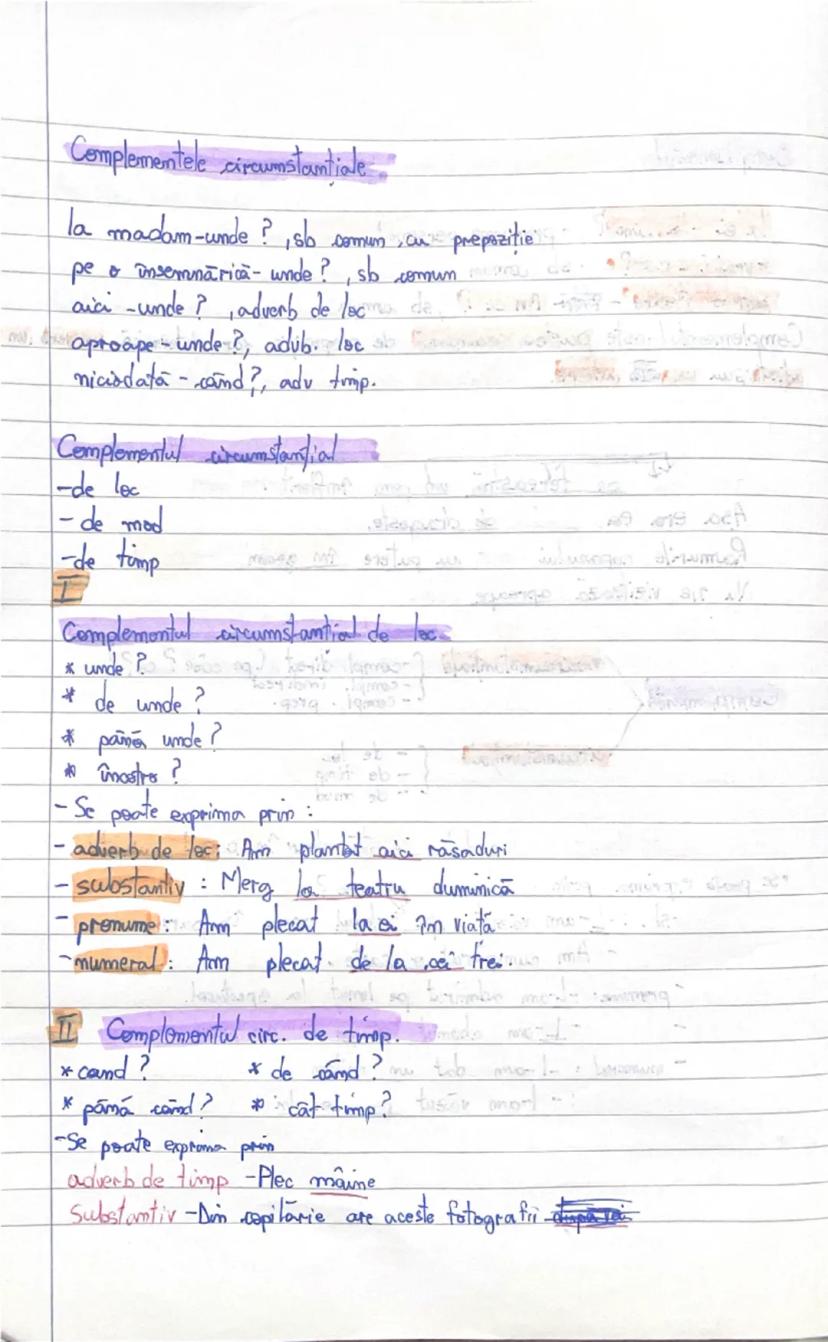 Complementele circumstanțiale
la madam-unde ?, sb comun, cu prepoziție
pe o însemnărică- unde?, sb comun
aici -unde ?, adverb de loc
aproape-unde?, advb. loc
niciodată - când?, adv timp.
Complementul circumstanțial
-de loc
- de mod
-de timp
I
Complementul circumstanțial de loc
* unde ?
* de unde ?
* până unde ?
* înostro ?
- Se poate exprima prin :
- adverb de loc: Am plantat aici răsaduri
- substantiv : Merg la teatru duminică
- pronume : Am plecat la ei în viață
- numeral : Am plecat de la cei trei.
II Complementul circ. de timp.
* cand ? * de când ?
* până când ? * cât timp?
-Se poate exprima prin
adverb de timp -Plec mâine
Substantiv -Din copilărie are aceste fotografii